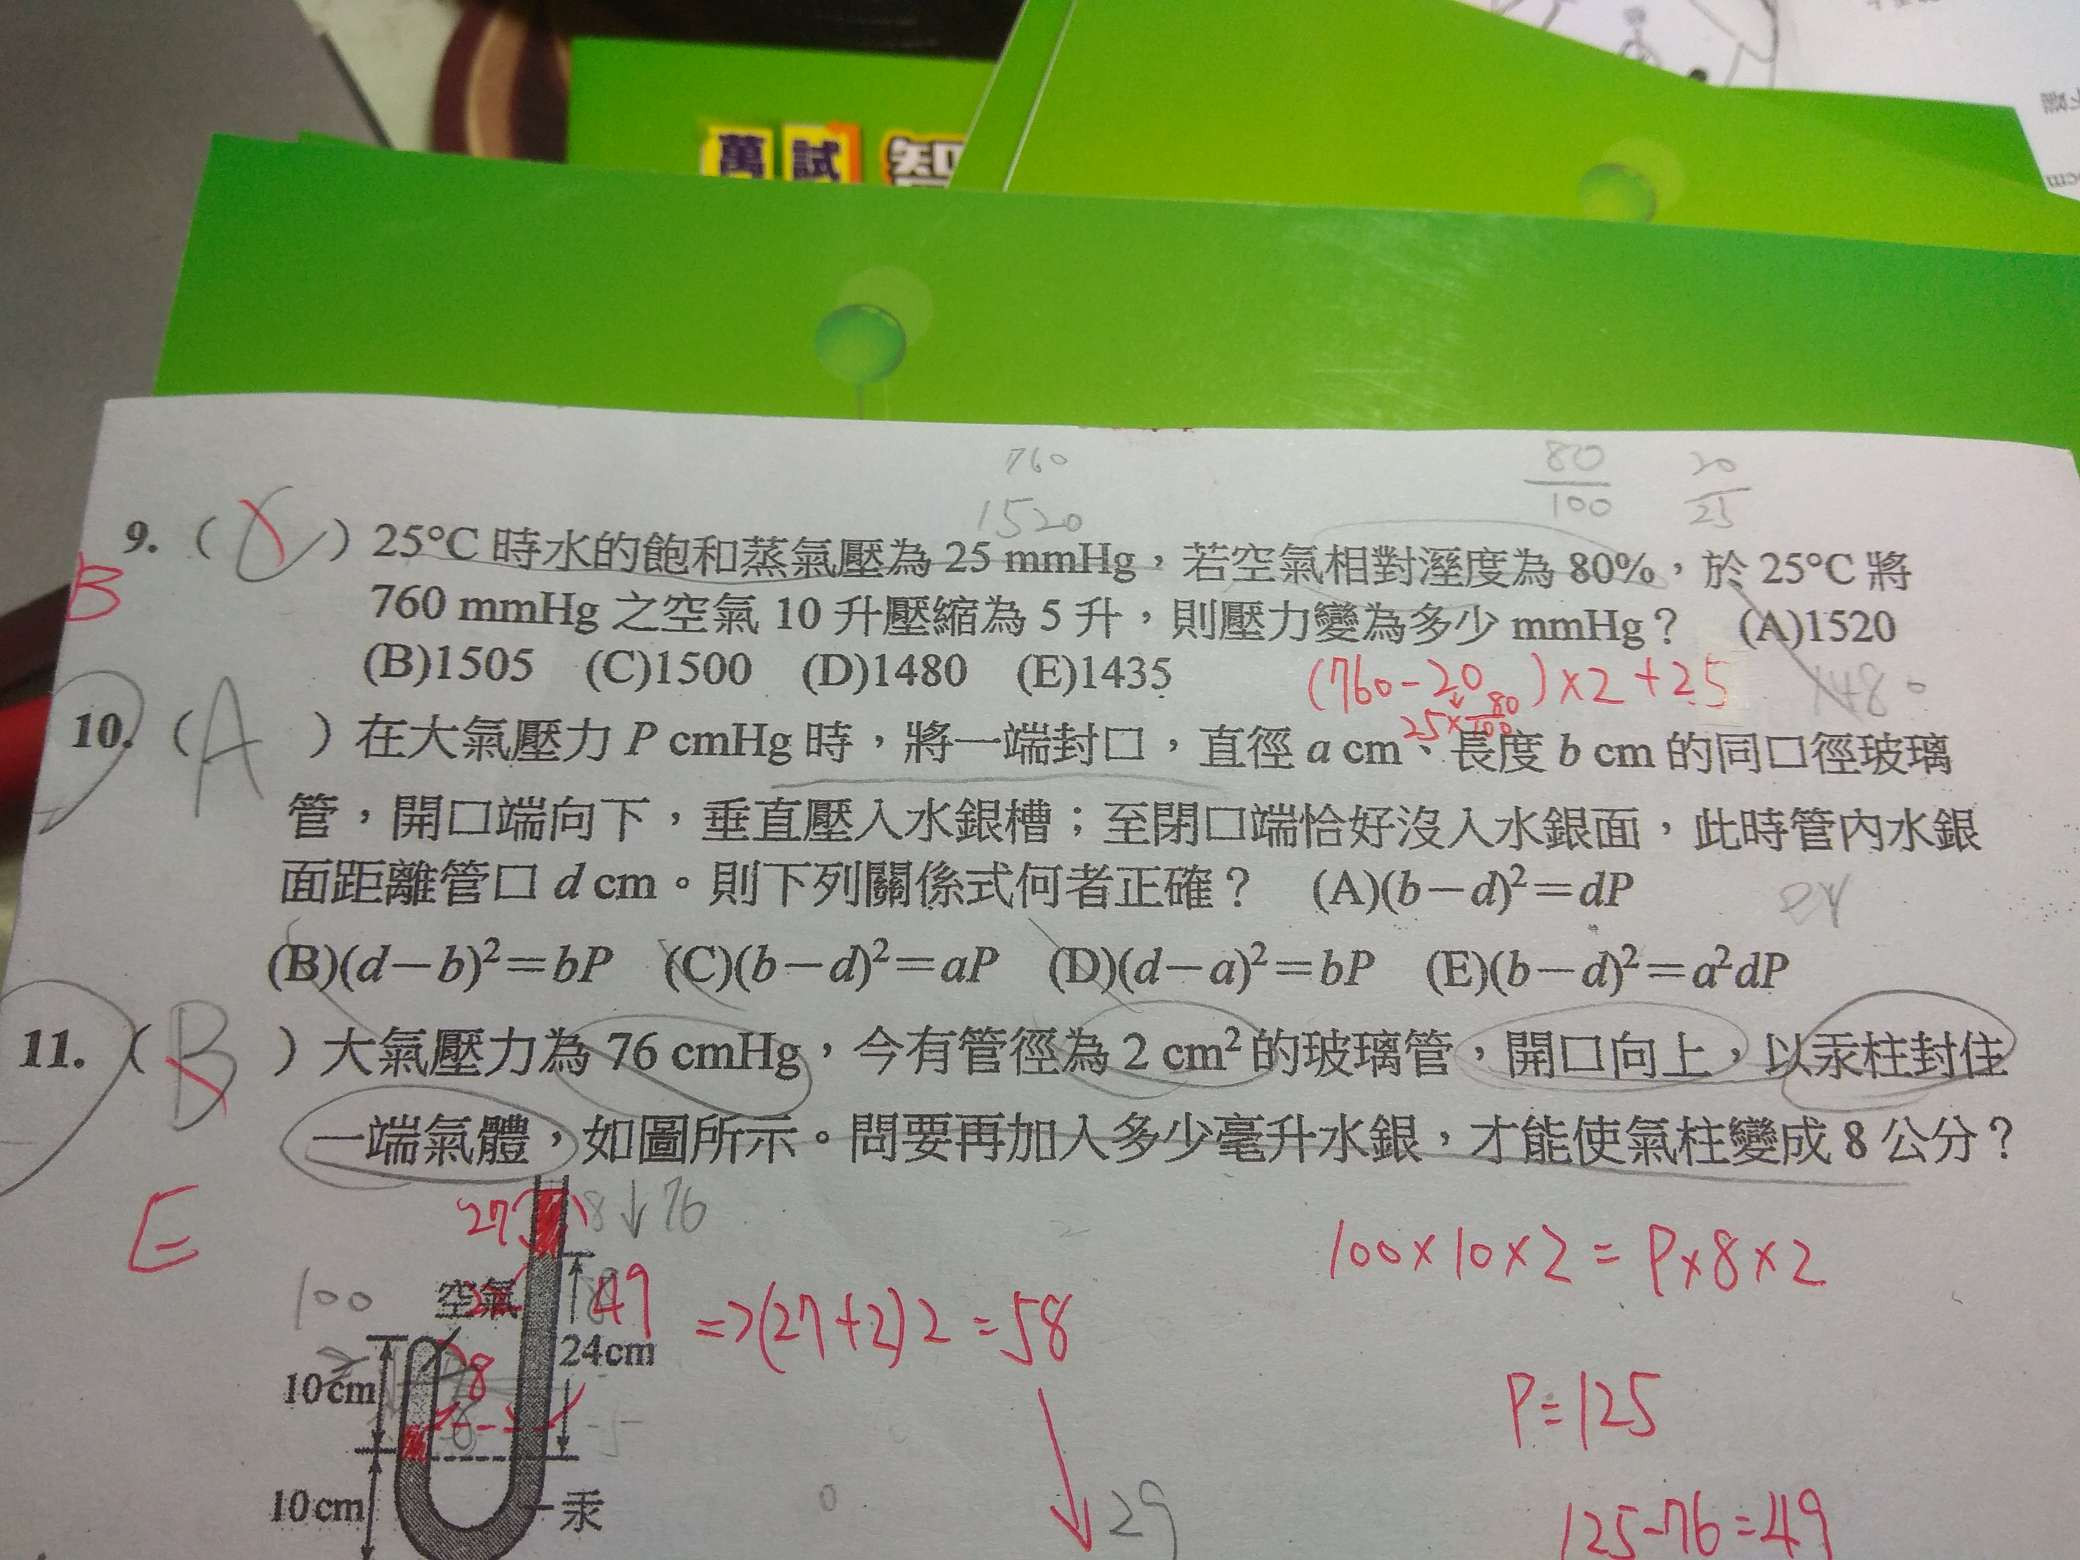 萬試
760
1520
80
100
20
25
9. ( ) 25°C 時水的飽和蒸氣壓為 25 mmHg,若空氣相對溼度為 80%,於 25°C 將
B
760 mmHg 之空氣 10 升壓縮為 5 升,則壓力變為多少 mmHg? (A)1520
(B)1505 (C)1500 (D)1480 (E)1435
(760-20)×2+25
25×80/100
1480
10. ( A ) 在大氣壓力 P cmHg 時,將一端封口,直徑 a cm、長度 b cm 的同口徑玻璃
管,開口端向下,垂直壓入水銀槽;至閉口端恰好沒入水銀面,此時管內水銀
面距離管口 d cm。則下列關係式何者正確? (A)(b-d)²=dP
PV
(B)(d-b)²=bP (C)(b-d)²=aP (D)(d-a)²=bP (E)(b-d)²=a²dP
11. ( B ) 大氣壓力為 76 cmHg,今有管徑為 2 cm²的玻璃管,開口向上,以汞柱封住
一端氣體,如圖所示。問要再加入多少毫升水銀,才能使氣柱變成 8 公分?
E
27
8↓76
100×10×2=P×8×2
100
空氣
49
=>(27+2)2=58
24cm
10cm
8
P=125
10cm
汞
29
125-76=49